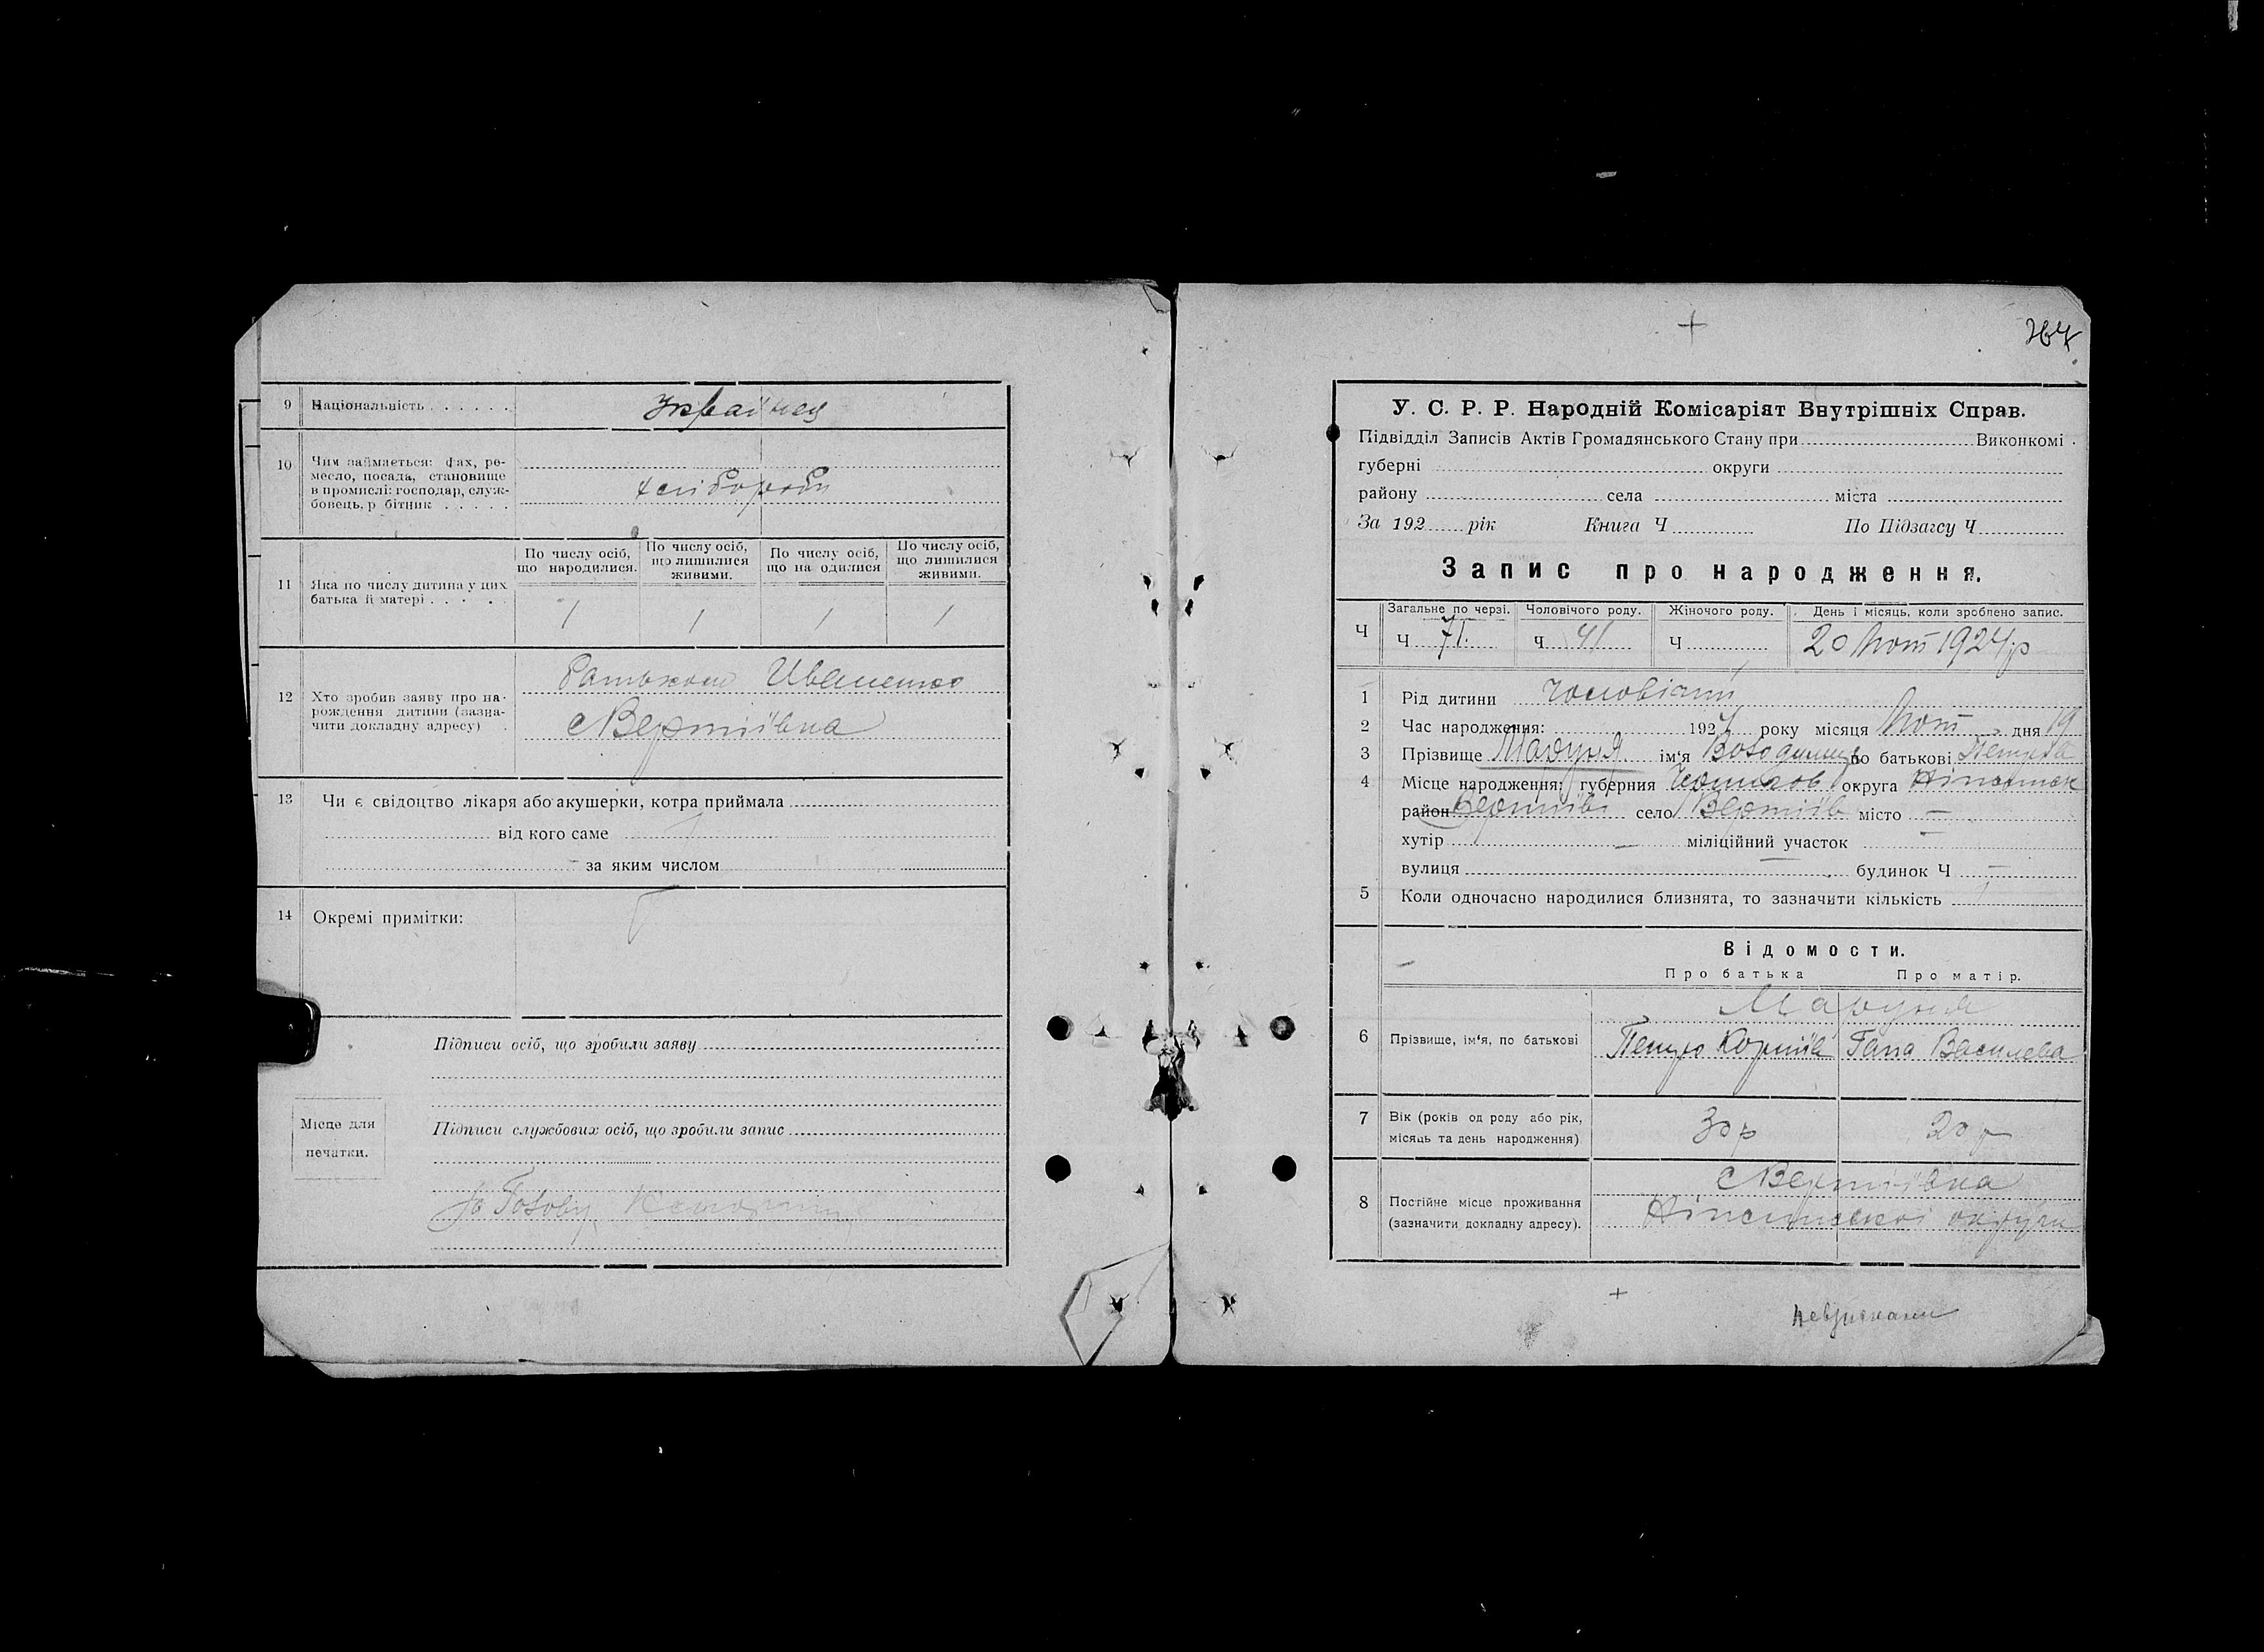 9 Національність . . . . . . Украінец
10 Чим займається: фах, ре-
месло, посада, становище
в промислі: господар, служ-
бовець, р бітник . . . . .
хлібороби
11 Яка по числу дитина у цих
батька й матері . . . .
По числу осіб, що народилися.
По числу осіб, що лишилися живими.
По числу осіб, що на одилися
По числу осіб, що лишилися живими.
1 1 1 1
12 Хто зробив заяву про на-
рождення дитини (зазна-
чити докладну адресу)
батьком
с Вертіївка
13 Чи є свідоцтво лікаря або акушерки, котра приймала
від кого саме
за яким числом
14 Окремі примітки:
Підписи осіб, що зробили заяву
Місце для
печатки.
Підписи службових осіб, що зробили запис
264
У. С. Р. Р. Народній Комісаріят Внутрішніх Справ.
Підвідділ Записів Актів Громадянського Стану при Виконкомі
губерні округи
району села міста
За 192 рік Книга Ч По Підзагсу Ч
Запис про народження.
Загальне по черзі. Чоловічого роду. Жіночого роду. День і місяць, коли зроблено запис.
Ч Ч 71. Ч 41 Ч 20 Лют 1924 р
1 Рід дитини
2 Час народження: 1924 року місяця Лют дня 19
3 Прізвище ім'я по батькові Петрова
4 Місце народження: губерния округа
район Вертіїв село Вертіїв місто —
хутір — міліційний участок —
вулиця — будинок Ч —
5 Коли одночасно народилися близнята, то зазначити кількість
Відомости.
Про батька Про матір.
6 Прізвище, ім'я, по батькові
Петро Гапа Василева
7 Вік (років од роду або рік,
місяць та день народження)
30 р 20 р
8 Постійне місце проживання
(зазначити докладну адресу).
с Вертіївка
округи